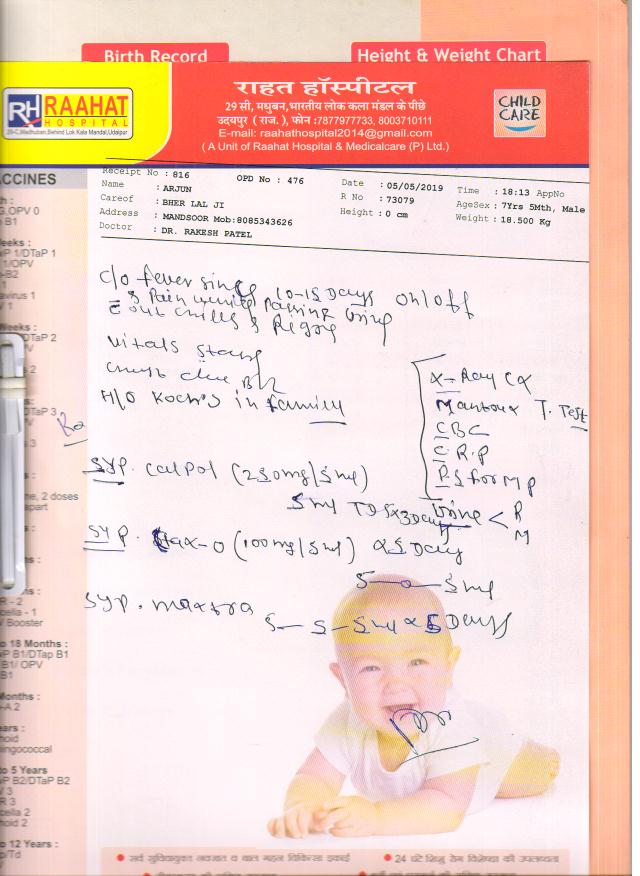 Birth Record
Height & Weight Chart
RH RAAHAT
HOSPITAL
29-C, Madhuban, Behind Lok Kala Mandal, Udaipur
राहत हॉस्पीटल
29 सी, मधुबन, भारतीय लोक कला मंडल के पीछे
उदयपुर ( राज. ), फोन :7877977733, 8003710111
E-mail: raahathospital2014@gmail.com
( A Unit of Raahat Hospital & Medicalcare (P) Ltd.)
CHILD
CARE
Receipt No : 816
OPD No : 476
Date : 05/05/2019
Time : 18:13 AppNo
Name : ARJUN
R No : 73079
AgeSex : 7Yrs 5Mth, Male
Careof : BHER LAL JI
Height : 0 cm
Weight : 18.500 Kg
Address : MANDSOOR Mob:8085343626
Doctor : DR. RAKESH PATEL
C/o fever since 10-15 Days on/off
Pain during passing urine
out chills & Rigors
Vitals
chest B/L
H/o Koch's in family
X-Ray CX
Mantoux T. Test
CBC
C.R.P
PS for MP
Urine < R
M
SYP. Calpol (250mg/5ml)
5ml TDS x 3 Days
SYP. -O (100mg/5ml) x 5 Days
5-0-5ml
SYP. Maxtra
5-5-5ml x 5 Days
ACCINES
OPV 0
B1
1/DTaP 1
1/OPV
-B2
1
DTaP 2
2
DTaP 3
3
, 2 doses
apart
R - 2
- 1
Booster
18 Months :
B1/DTap B1
B1/ OPV
B1
A 2
5 Years
B2/DTaP B2
3
R 3
2
2
12 Years :
/Td
सर्व सुविधायुक्त नवजात व बाल गहन चिकित्सा इकाई
24 घंटे शिशु रोग विशेषज्ञ की उपलब्धता